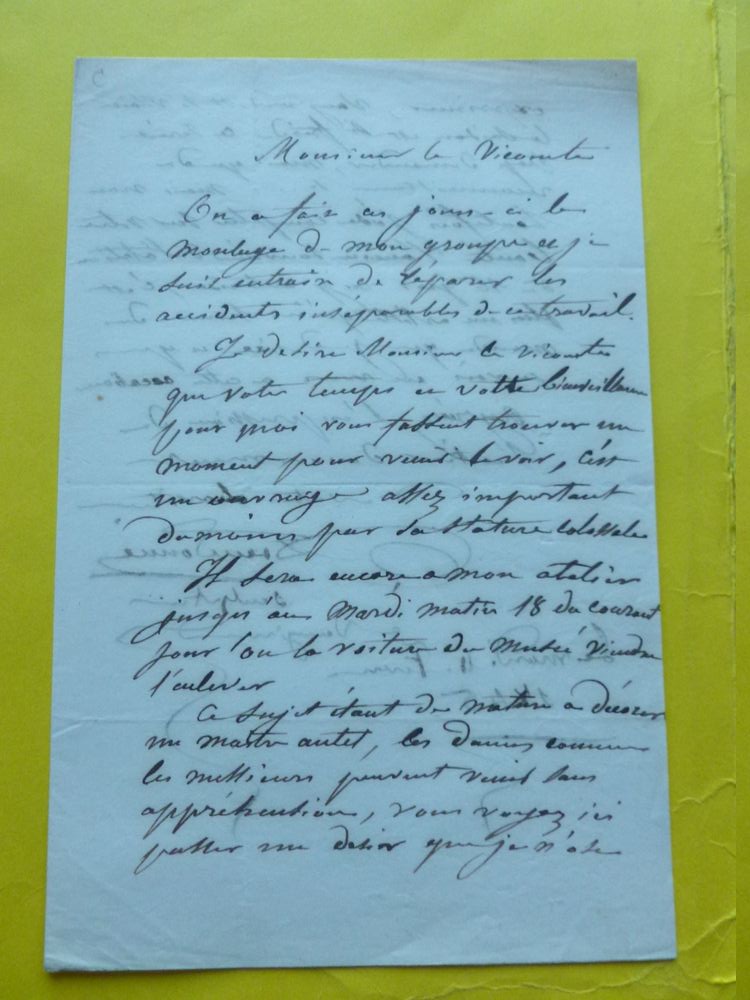 Monsieur le Vicomte
On a fait ces jours-ci le
moulage de mon groupe et je
suis entrain de réparer les
accidents inséparables de ce travail.
Je desire Monsieur le Vicomte
que votre temps et votre bienveillance
pour moi vous fassent trouver un
moment pour venir le voir, c'est
un ouvrage assez important
du moins par sa stature colossale
Il sera encore a mon atelier
jusqu'au mardi matin 18 du courant
jour l'ou la voiture du Musée viendra
l'enlever
Ce sujet étant de nature a décorer
un maitre autel, les dames comme
les messieurs peuvent venir sans
appréhention, vous voyez ici
passer un desir que je n'ose